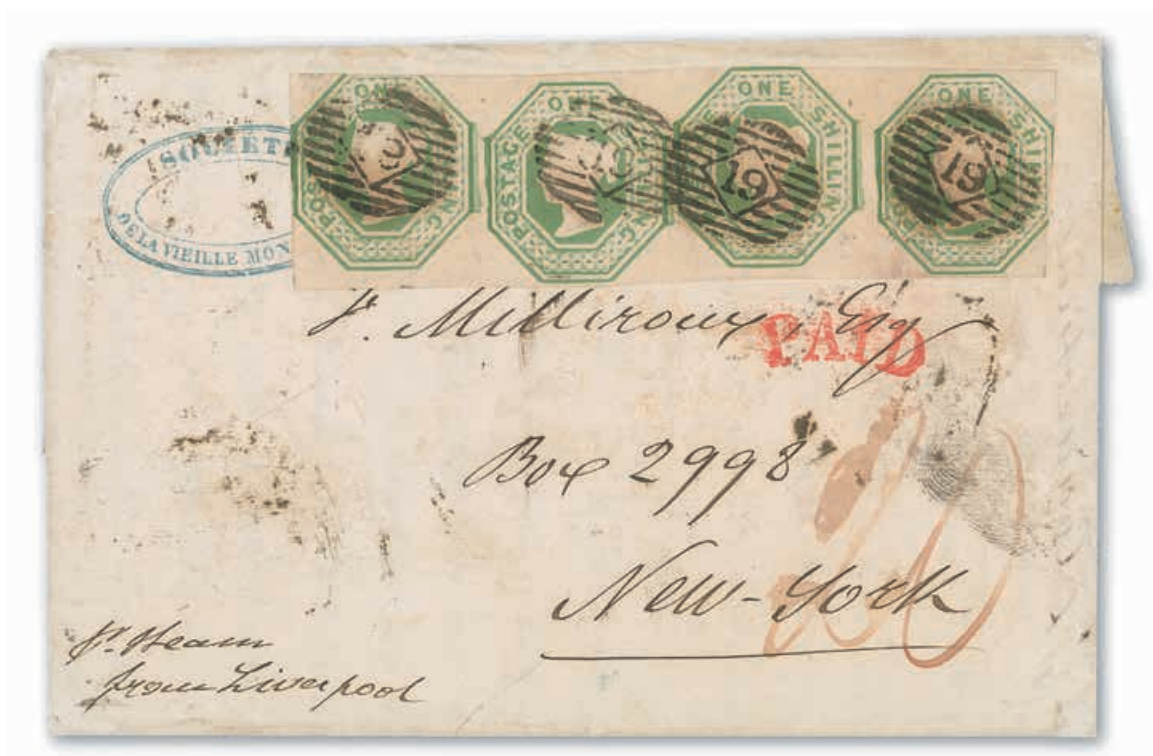 SOCIETE
DE LA VIEILLE MON
ONE
POSTAGE SHILLING
ONE
POSTAGE SHILLING
ONE
SHILLING
ONE
SHILLING
19
19
Milliroux, Esq
PAID
Box 2998
New-York
pr. Steam
from Liverpool